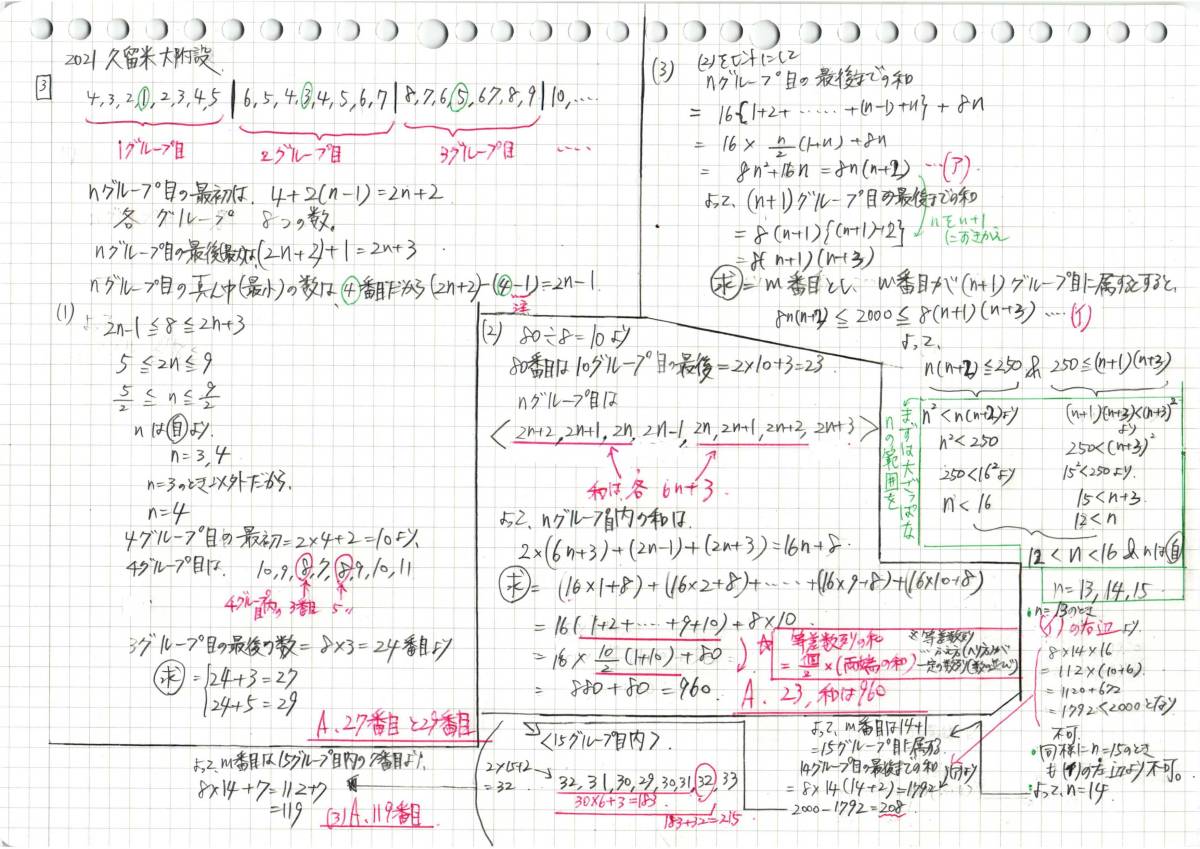 2021 久留米大附設
3
4,3,2,1,2,3,4,5 | 6,5,4,3,4,5,6,7 | 8,7,6,5,6,7,8,9 | 10,‥‥
1グループ目 2グループ目 3グループ目 ‥‥
nグループ目の最初は、4+2(n-1)=2n+2
各グループ 8つの数。
nグループ目の最後は(2n+2)+1=2n+3
nグループ目の真ん中(最小)の数は④番目だから(2n+2)-(④-1)=2n-1.
注
(1)
よって
2n-1≦8≦2n+3
5≦2n≦9
5/2≦n≦9/2
nは自より
n=3,4
n=3のときは以外だから、
n=4
4グループ目の最初=2×4+2=10より、
4グループ目は、10,9,8,7,8,9,10,11
4グループ目内の3番目 5〃
3グループ目の最後の数=8×3=24番目より
求={24+3=27
24+5=29
A. 27番目と29番目
(2) 80÷8=10より
80番目は10グループ目の最後=2×10+3=23
nグループ目は
<2n+2,2n+1,2n,2n-1,2n,2n+1,2n+2,2n+3>
和は各 6n+3.
よって、nグループ目内の和は、
2×(6n+3)+(2n-1)+(2n+3)=16n+8.
求=(16×1+8)+(16×2+8)+‥‥+(16×9+8)+(16×10+8)
=16(1+2+‥‥+9+10)+8×10
=16×10/2(1+10)+80
=880+80=960.
☆ 等差数列の和
=個/2×(両端の和)
※等差数列
一定の数列(数の並び)
A. 23,和は960
(3) (2)をヒントにして
nグループ目の最後までの和
=16{1+2+‥‥‥+(n-1)+n}+8n
=16×n/2(1+n)+8n
=8n²+16n=8n(n+2) ‥‥(ア)
よって、(n+1)グループ目の最後までの和
nをn+1におきかえ
=8(n+1){(n+1)+2}
=8(n+1)(n+3)
求=m番目とし、m番目が(n+1)グループ目に属するとすると、
8n(n+2)≦2000≦8(n+1)(n+3)‥‥(イ)
よって、
n(n+2)≦250 & 250≦(n+1)(n+3)
まずは大ざっぱなnの範囲を
n²<n(n+2)より
n²<250
250<16²より
n<16
(n+1)(n+3)<(n+3)²
より
250<(n+3)²
15²<250より
15<n+3
12<n
12<n<16&nは自
n=13,14,15.
・n=13のとき
(イ)の右辺より
8×14×16
=112×(10+6)
=1120+672
=1792<2000となり
不可.
・同様にn=15のとき
も(イ)の左辺より不可。
・よって、n=14
よって、m番目は14+1
=15グループ目に属する
14グループの最後までの和
(ア)より
=8×14(14+2)=1792
2000-1792=208
<15グループ目内>
2×15+2
=32
32,31,30,29,30,31,32,33
30×6+3=183
183+32=215
よって、m番目は15グループ目内の7番目より、
8×14+7=112+7
=119
(3)A. 119番目